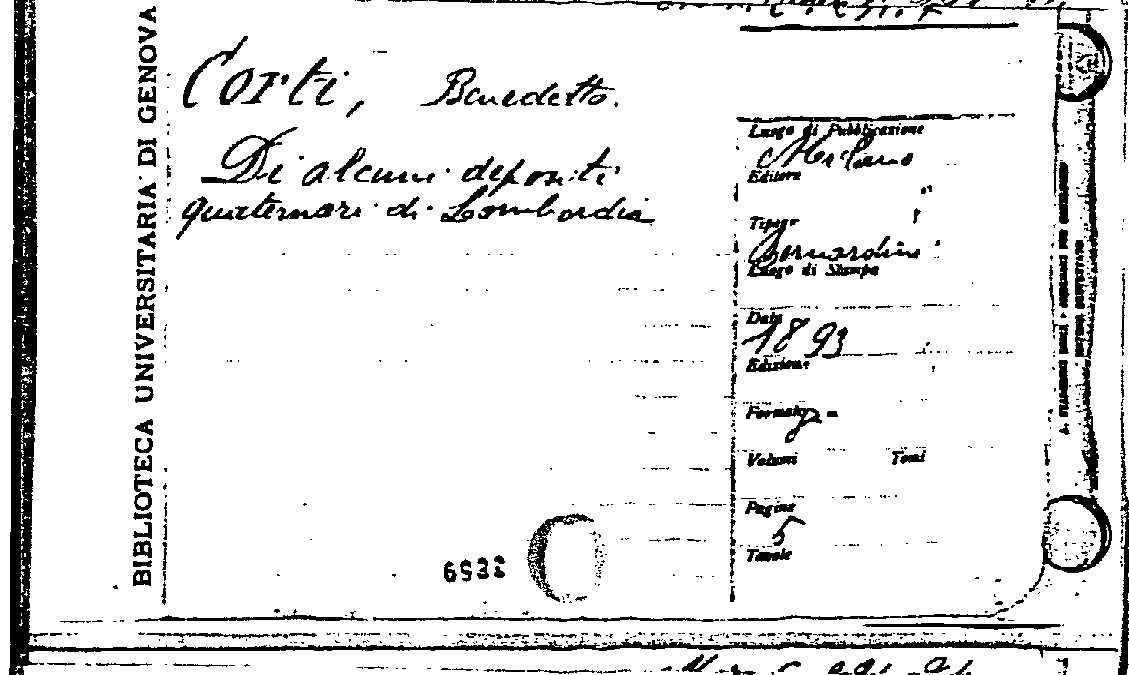 BIBLIOTECA UNIVERSITARIA DI GENOVA
Corti, Benedetto.
Di alcuni depositi
quaternari di Lombardia
Luogo di Pubblicazione
Milano
Editore
"
Tipogr
Bernardoni
Luogo di Stampa
Data
1893
Edizione
Formato
Volumi Tomi
Pagine
5
Tavole